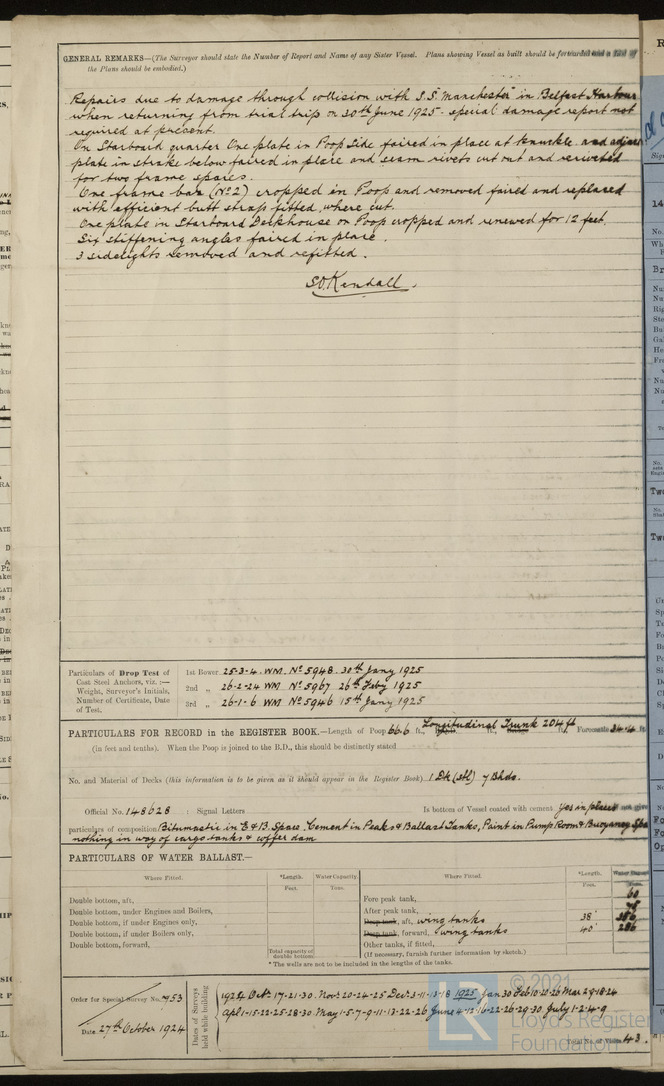 GENERAL REMARKS—(The Surveyor should state the Number of Report and Name of any Sister Vessel. Plans showing Vessel as built should be forwarded
the Plans should be embodied.)
Repairs due to damage through collision with S.S. "Manchester" in Belfast Harbour
when returning from trial trip on 30th June 1925 - special damage report not
required at present.
On Starboard quarter One plate in Poop side faired in place at knuckle and
plate in strake below faired in place and seam rivets cut out and reriveted
for two frame spaces.
One frame bar (No 2) cropped in Poop and removed faired and replaced
with efficient butt strap fitted, where cut.
One plate in Starboard Deckhouse on Poop cropped and renewed for 12 feet.
Six stiffening angles faired in place.
3 sidelights removed and refitted.
S.O. Kendall.
Particulars of Drop Test of
Cast Steel Anchors, viz. :—
Weight, Surveyor's Initials,
Number of Certificate, Date
of Test.
1st Bower 25-3-4. WM. No 5948. 30th Jany 1925
2nd „ 26-2-24 WM No 5967 26th Feby 1925
3rd „ 26-1-6 WM No 5946 15th Jany 1925
PARTICULARS FOR RECORD in the REGISTER BOOK.—Length of Poop 66.6 ft., Longitudinal Trunk 204 ft Forecastle 34.4 ft
(in feet and tenths). When the Poop is joined to the B.D., this should be distinctly stated
No. and Material of Decks (this information is to be given as it should appear in the Register Book) 1 Dk (stl) 7 Bhds.
Official No. 148628 : Signal Letters Is bottom of Vessel coated with cement Yes in places
particulars of composition Bitumastic in E & B. Space. Cement in Peaks & Ballast Tanks, Paint in Pump Room & Buoyancy
nothing in way of cargo tanks & coffer dam
PARTICULARS OF WATER BALLAST.—
Where Fitted. *Length. Water Capacity. Where Fitted. *Length.
Feet. Tons. Feet. Tons.
Double bottom, aft, Fore peak tank, 60
Double bottom, under Engines and Boilers, After peak tank,
Double bottom, if under Engines only, Deep tank, aft, wing tanks 38'
Double bottom, if under Boilers only, Deep tank, forward, wing tanks 40' 286
Double bottom, forward, Other tanks, if fitted,
Total capacity of double bottom (If necessary, furnish further information by sketch.)
* The wells are not to be included in the lengths of the tanks.
Order for Special Survey No. 753
Date 27th October 1924
Dates of Surveys held while building
1924 Oct. 17-21-30. Nov. 20-24-25 Dec. 3-11-13-18 1925 Jan 30 Feb 10-21-26 Mar 2-9-18-24
Apl 1-15-22-25-28-30 May 1-5-7-9-11-13-22-26 June 4-12-16-22-26-29-30 July 1-2-4-9
Total No. of Visits 43.
LR
© 2021
Lloyd's Register
Foundation